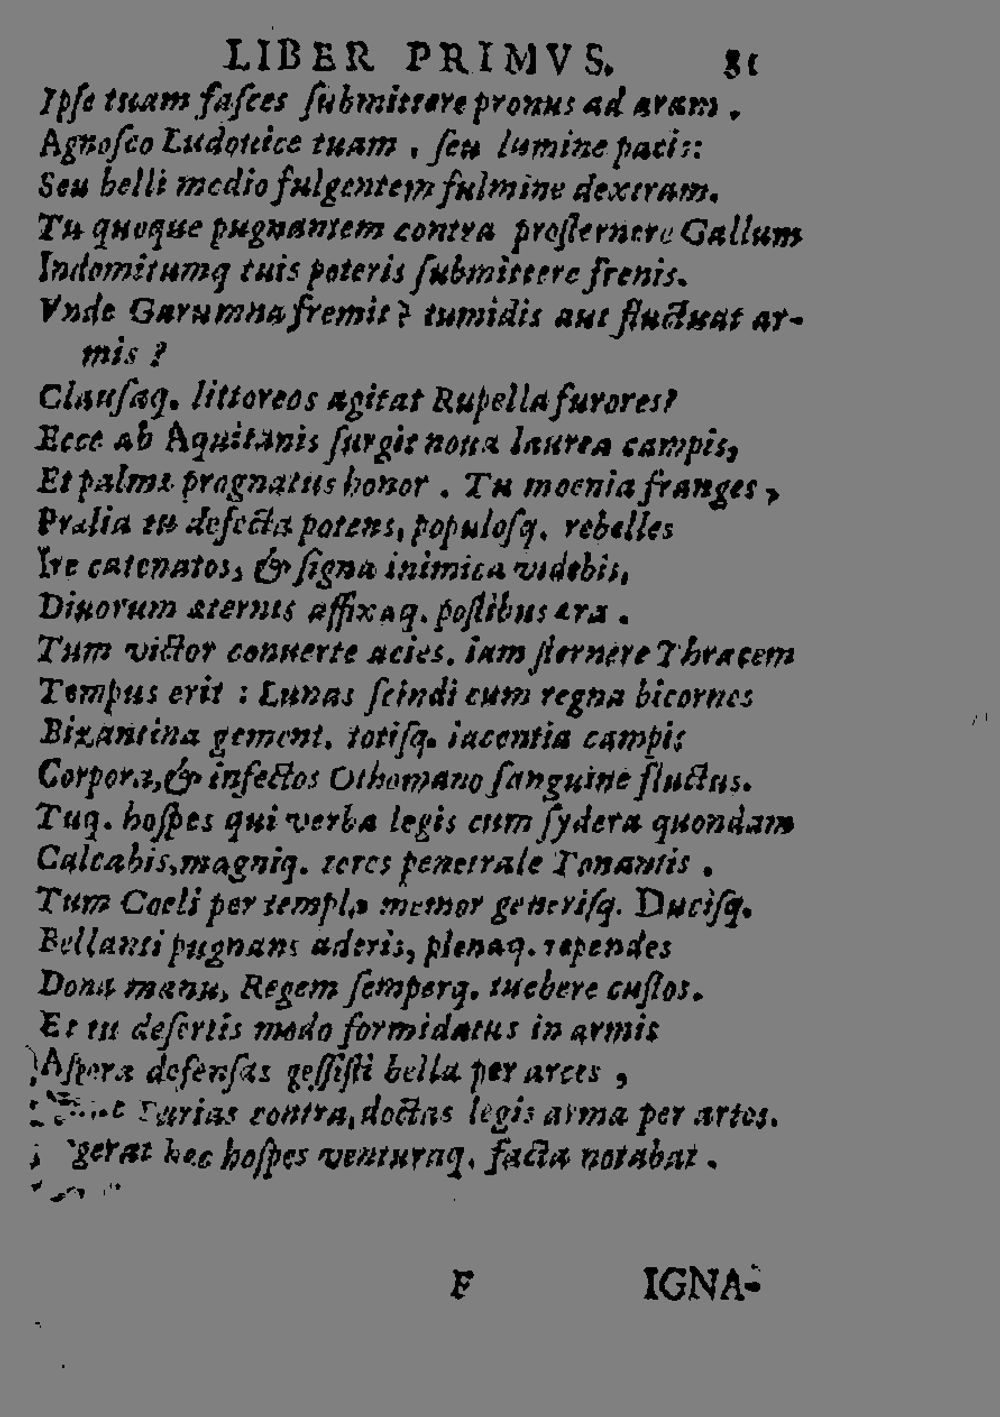 LIBER PRIMVS. 81
Ipſe tuam faſces ſubmittere pronus ad aram.
Agnoſco Ludouice tuam, ſeu lumine pacis:
Seu belli medio fulgentem fulmine dextram.
Tu quoque pugnantem contra proſternere Gallum
Indomitumq tuis poteris ſubmittere frenis.
Vnde Garumna fremit? tumidis aut fluctuat ar-
mis?
Clauſaq. littoreos agitat Rupella furores?
Ecce ab Aquitanis ſurgit noua laurea campis,
Et palma prognatus honor. Tu moenia franges,
Prælia tu defecta potens, populoſq. rebelles
Ire catenatos, & ſigna inimica videbis,
Diuorum æternis affixaq. poſtibus æra.
Tum victor conuerte acies. iam ſternere Thracem
Tempus erit: Lunas ſcindi cum regna bicornes
Bizantina gement. totiſq. iacentia campis
Corpora, & infectos Othomano ſanguine fluctus.
Tuq. hoſpes qui verba legis cum ſydera quondam
Calcabis, magniq. teres penetrale Tonantis.
Tum Coeli per templa memor generiſq. Duciſq.
Bellanti pugnans aderis, plenaq. rependes
Dona manu, Regem ſemperq. tuebere cuſtos.
Et tu deſertis modo formidatus in armis
Aſpera defenſas geſſiſti bella per arces,
contra, doctas legis arma per artes.
hec hoſpes venturaq. facta notabat.
F IGNA-